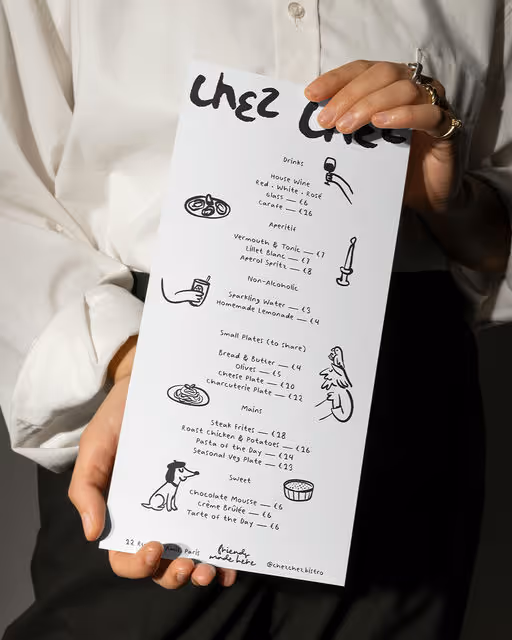 chez chez
Drinks
House Wine
Red · White · Rosé
Glass — €6
Carafe — €26
Aperitif
Vermouth & Tonic — €7
Lillet Blanc — €7
Aperol Spritz — €8
Non-Alcoholic
Sparkling Water — €3
Homemade Lemonade — €4
Small Plates (to share)
Bread & Butter — €4
Olives — €5
Cheese Plate — €20
Charcuterie Plate — €22
Mains
Steak Frites — €28
Roast Chicken & Potatoes — €26
Pasta of the Day — €24
Seasonal Veg Plate — €23
Sweet
Chocolate Mousse — €6
Crème Brûlée — €6
Tarte of the Day — €6
22 Paris
friends
made here
@chezchezbistro